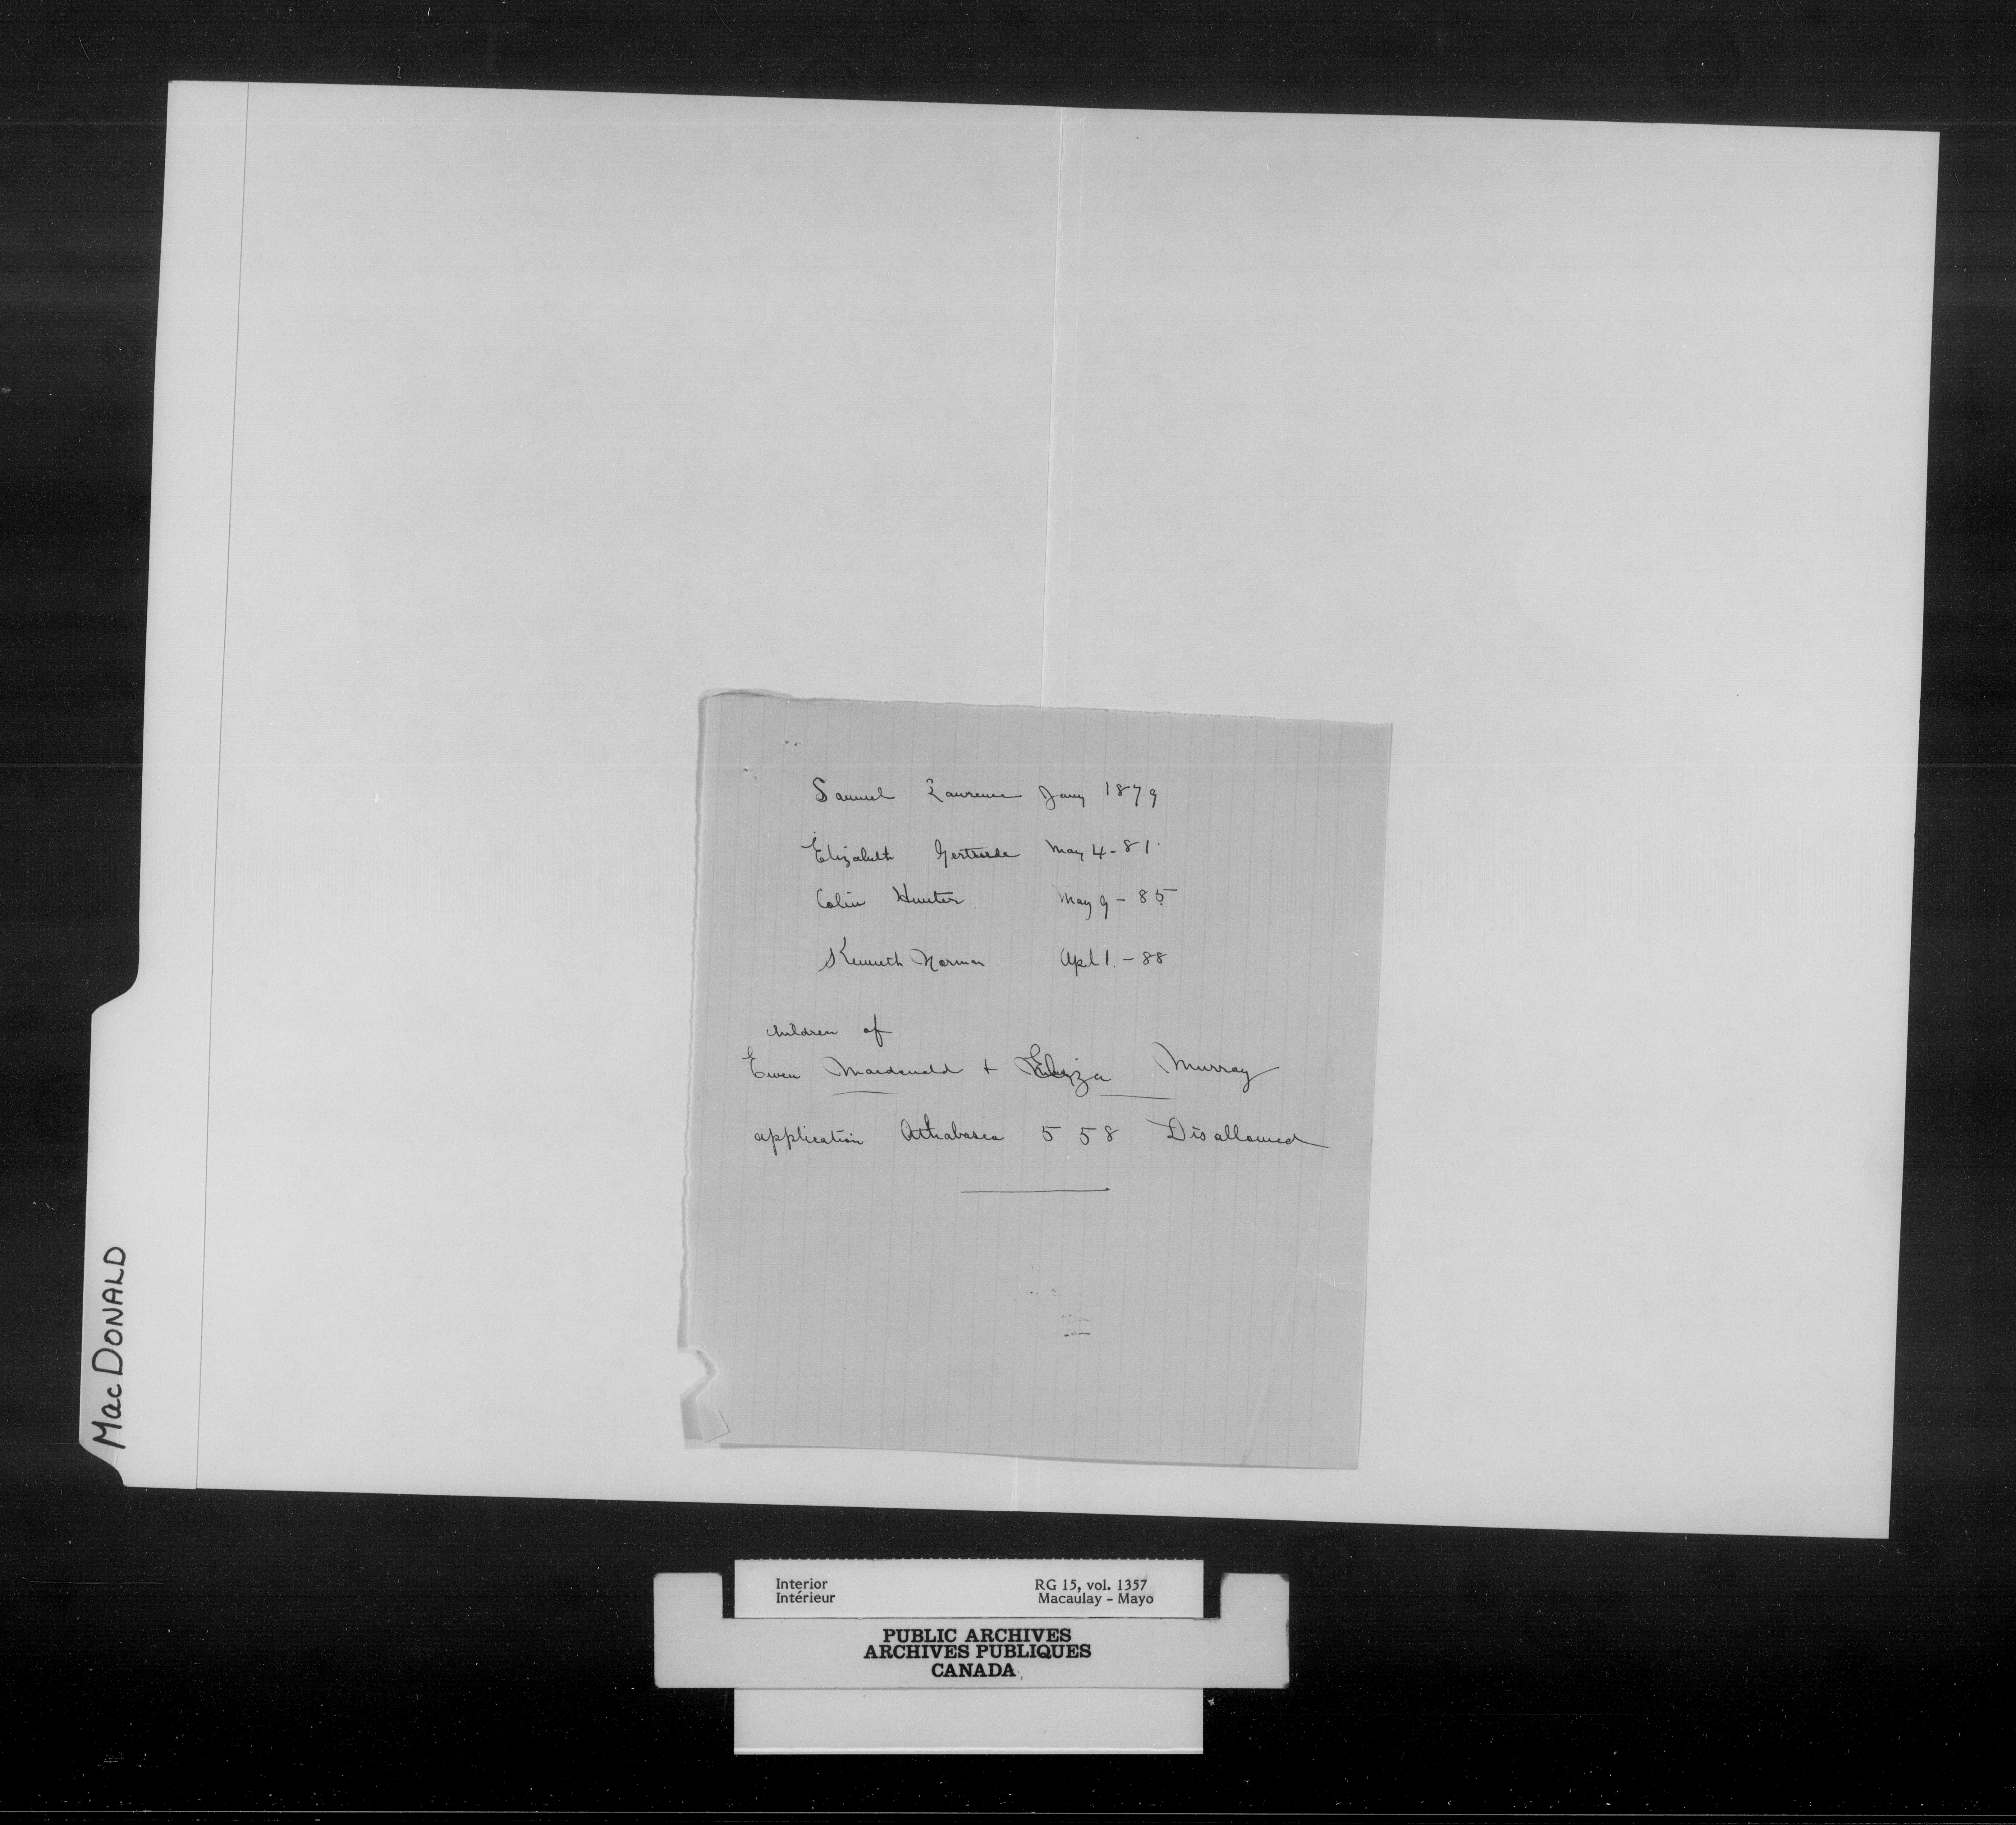 Samuel Lawrence Jany 1879
Elizabeth Gertrude May 4-81.
Colin Hunter May 9-85
Kenneth Norman Apl 1.-88
children of
Ewen Macdonald + Eliza Murray
application Athabasca 558 Disallowed
MacDONALD
Interior RG 15, vol. 1357
Intérieur Macaulay - Mayo
PUBLIC ARCHIVES
ARCHIVES PUBLIQUES
CANADA